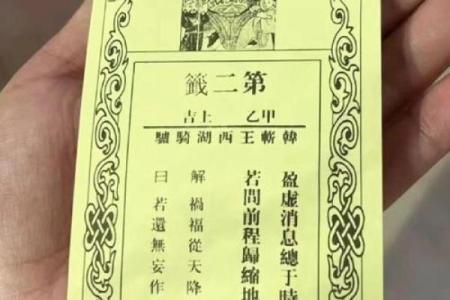 第二籤
甲乙 上吉
韓蘄王西湖騎驢
盈虛消息總于時
若問前程歸縮地
解 禍福從天降
曰 若還無妄作